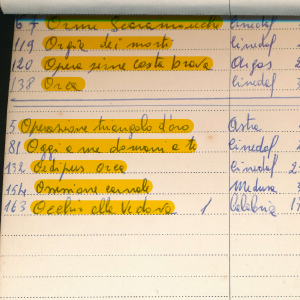 67 Orme Scaramucche Cinedaf
119 Orgia dei morti Cinedaf
120 Opera sine costa brava Argos 2
138 Orca Cinedaf 3
5 Operazione triangolo d'oro Astra
81 Oggi a me domani a te Cinedaf
132 Oedipus orca Cinedaf 2
154 Ossessione carnale Medusa 3
163 Occhio alla vedova 1 Calabria 17